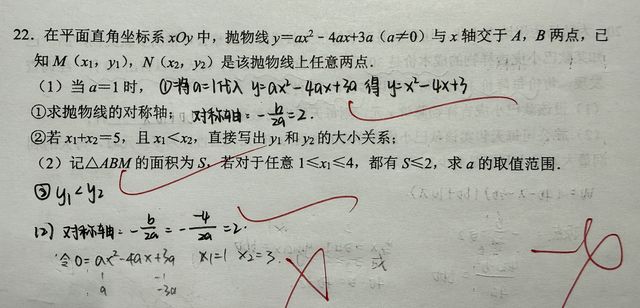 22. 在平面直角坐标系 xOy 中，抛物线 y=ax²－4ax+3a（a≠0）与 x 轴交于 A，B 两点，已
知 M（x₁，y₁），N（x₂，y₂）是该抛物线上任意两点．
（1）当 a=1 时， ①将a=1代入 y=ax²-4ax+3a 得 y=x²-4x+3
①求抛物线的对称轴； 对称轴: -b/2a = 2.
②若 x₁+x₂=5，且 x₁<x₂，直接写出 y₁ 和 y₂ 的大小关系；
（2）记△ABM 的面积为 S，若对于任意 1≤x₁≤4，都有 S≤2，求 a 的取值范围．
② y₁<y₂
(2) 对称轴: -b/2a = - -4/2a = 2.
令0=ax²-4ax+3a x₁=1 x₂=3.
1 -1
a -3a